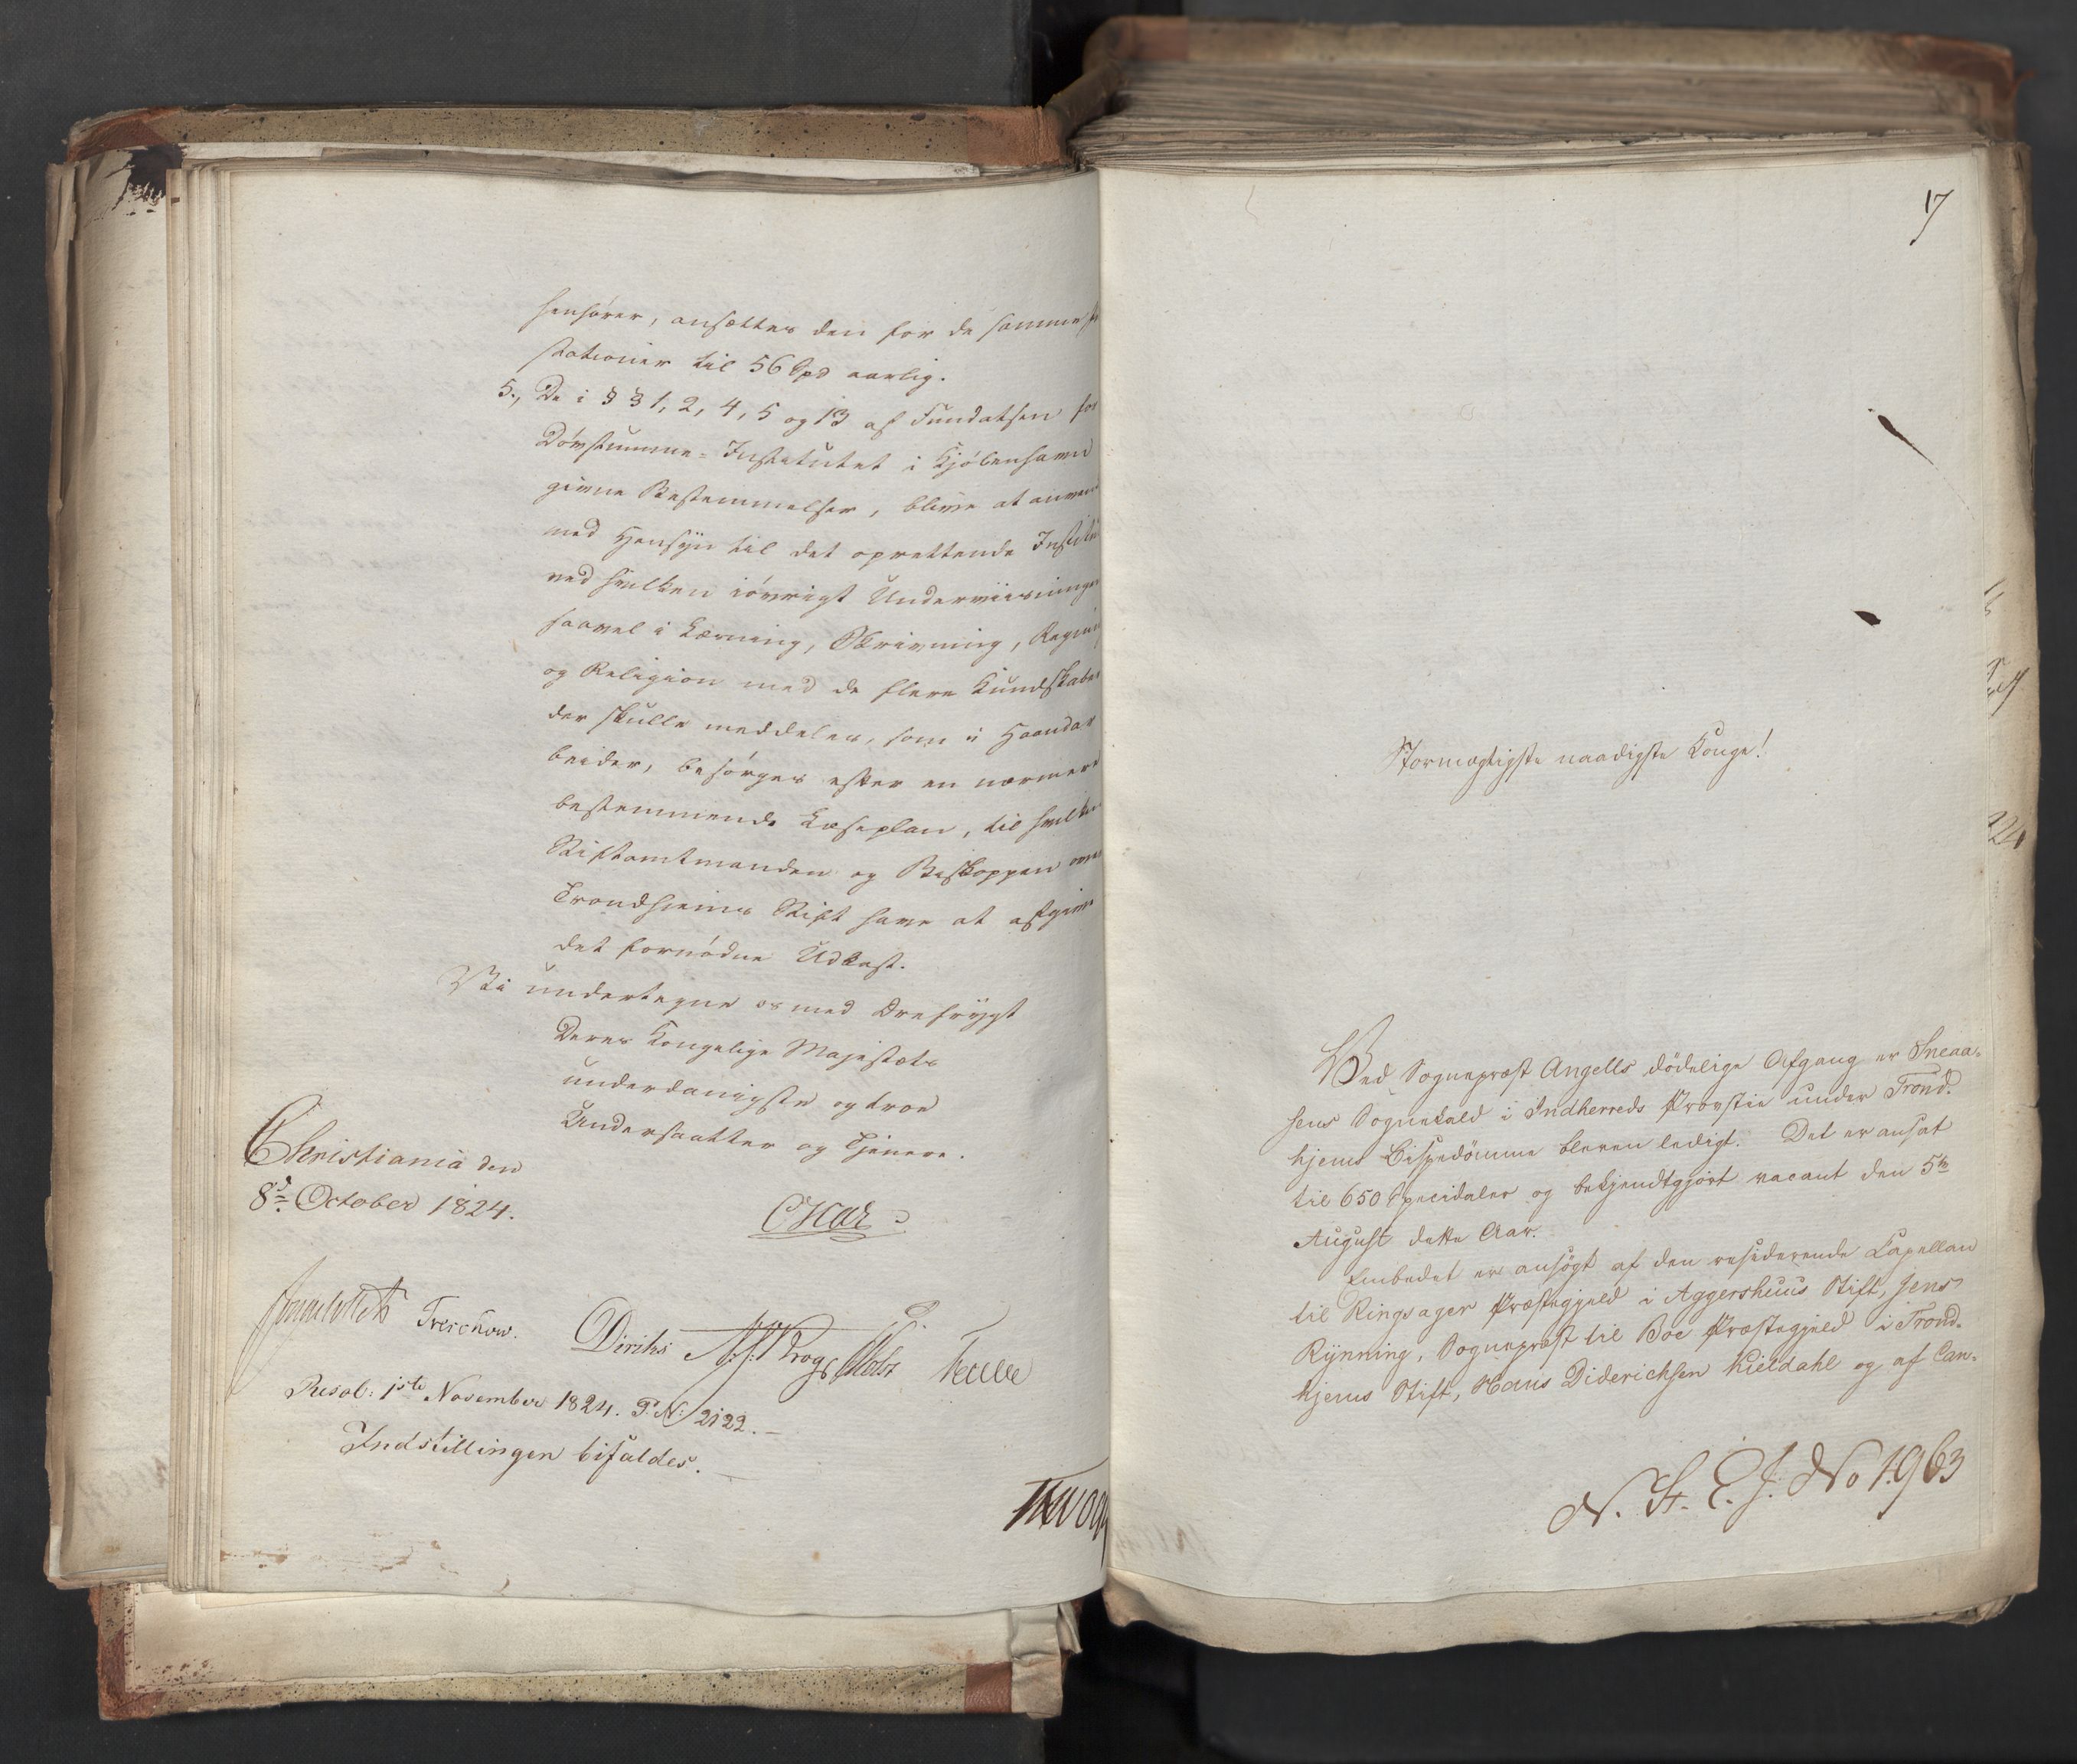 henhører, ansættes den for de samme
stationer til 56 Spd aarlig.
5., De i §§ 1, 2, 4, 5 og 13 af Fundatsen for
Døvstumme-Institutet i Kjøbenhavn
givne Bestemmelser, blive at anvende
med Hensyn til det oprettende Institut
ved hvilken iøvrigt Underviisningen
saavel i Læsning, Skrivning, Regning
og Religion med de flere Kundskaber
der skulle meddeles, som i Haandar
beider, besørges efter en nærmere
bestemmende Læseplan, til hvilken
Stiftamtmanden og Biskoppen over
Trondhjems Stift have at afgive
det fornødne Udkast.
Vi undertegne os med Ærefrygt
Deres Kongelige Majestæts
underdanigste og troe
Undersaatter og Tjenere.
Christiania den
8d October 1824.
Oscar
Treschow. Diriks Krog
Resol: 1ste November 1824. P. N: 2122.
Indstillingen bifaldes.
17
Stormægtigste naadigste Konge!
Ved Sognepræst Angells dödelige Afgang er Sneaa-
sens Sognekald i Indherreds Provstie under Trond-
hjems Bispedömme bleven ledigt. Det er ansat
til 650 Speciedaler og bekjendtgjort vacant den 5te
August dette Aar.
Embedet er ansögt af den residerende Capellan
til Ringsager Præstegjeld i Aggershuus Stift, Jens
Rynning, Sognepræst til Boe Præstegjeld i Trond-
hjems Stift, Hans Diderichsen Kieldahl og af Can-
N. St. E. J. No 1963